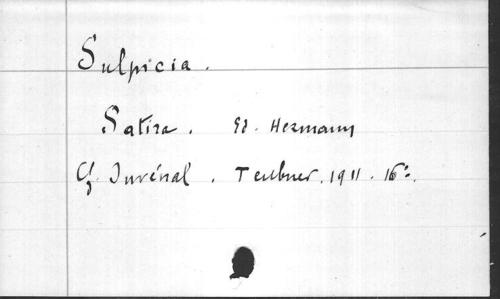 Sulpicia.
Satira. Ed. Hermann
Cf. Juvénal. Teubner. 1911. 16º.